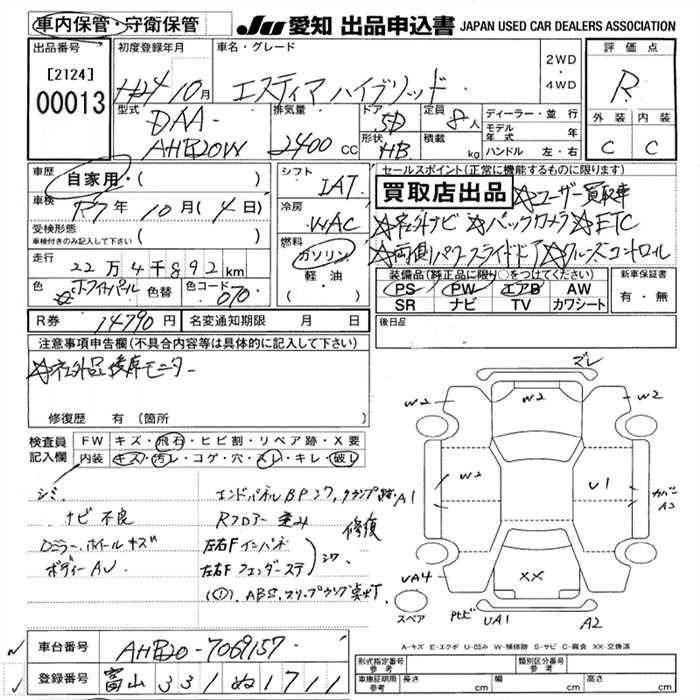 車内保管・守衛保管 JU 愛知 出品申込書 JAPAN USED CAR DEALERS ASSOCIATION
出品番号 初度登録年月 車名・グレード 評価点
[2124] 00013 H24 10月 エスティマ ハイブリッド 2WD・4WD R
型式 DAA-AHR20W 排気量 2400cc ドア 5D 形状 HB 定員 8人 積載 kg
ディーラー・並行 モデル年式 年 ハンドル 左・右
外装 内装
C C
車歴 自家用・( ) シフト IAT セールスポイント(正常に機能するものに限ります)
買取店出品 ☆ユーザー買取車
車検 R7年10月(4日) 冷房 WAC
☆社外ナビ ☆バックカメラ ☆ETC
受検形態 車検付きのみ記入して下さい ( ) 燃料 ガソリン・軽油
☆両側パワースライドドア ☆クルーズコントロール
走行 22万4千892km
装備品(純正品に限り○をつけてください) 新車保証書
PS PW エアB AW 有・無
SR ナビ TV カワシート
色 ホワイトパール 色替 色コード 070
R券 14790円 名変通知期限 月 日 後日品
注意事項申告欄(不具合内容等は具体的に記入して下さい)
☆社外品後席モニター
修復歴 有(箇所
検査員記入欄 FW キズ・飛石・ヒビ割・リペア跡・X要
内装 キズ・汚レ・コゲ・穴・スレ・キレ・破レ
シミ
ナビ 不良
Dミラー、ホイールキズ
ボディーAU
エンドパネルBPシワ,
Rフロアー 歪み 修復
左右F インパネ
左右F フェンダーステ シワ
ズレ
W2 W2 W2
A1 W2 U1 カバーA3
UA4 XX
スペア UA1 A2
A-キズ E-エクボ U-凹み W-補修跡 S-サビ C-腐食 XX-交換済
車台番号 AHR20-7069157
登録番号 富山 331 ぬ 1711
形式指定番号 参考 類別区分番号 参考
車庫証明用 参考 長さ cm 幅 cm 高さ cm